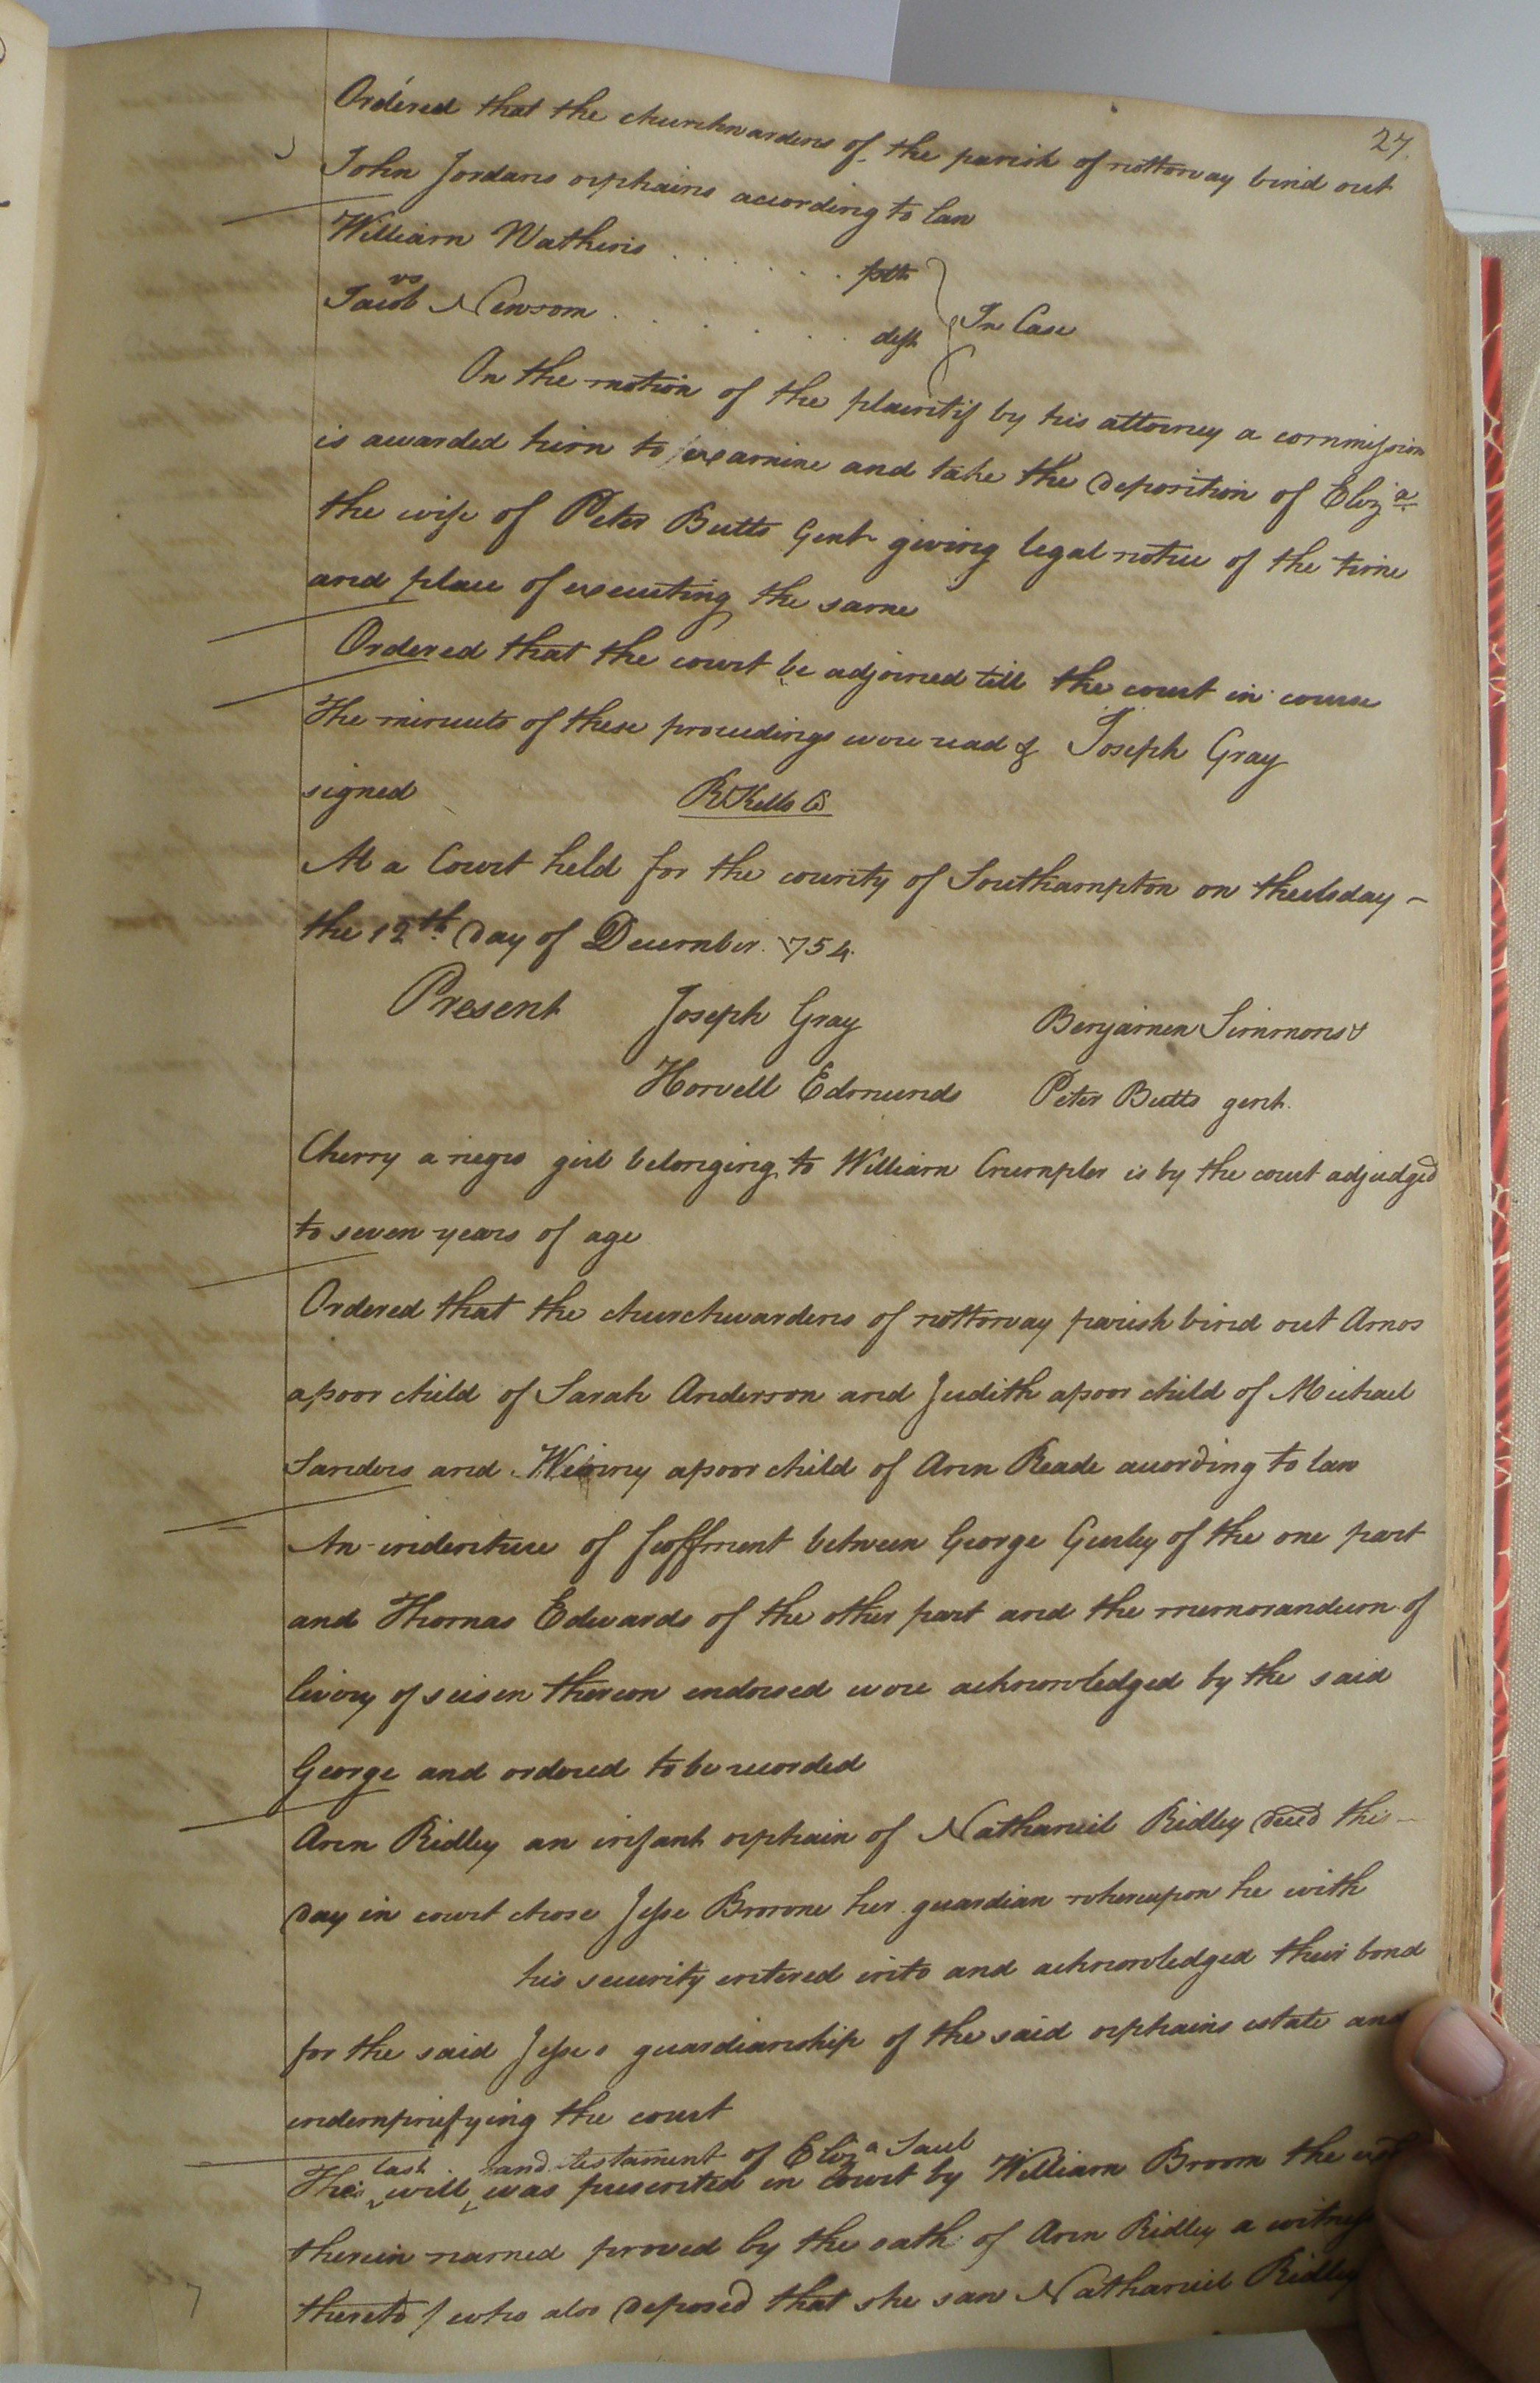 27.
Ordered that the churchwardens of the parish of nottoway bind out
John Jordans orphains according to law
William Wathins . . . . . . pltt
vs In Case
Jacob Newsom . . . . . deft
On the motion of the plaintif by his attorney a commission
is awarded him to examine and take the deposition of Eliza
the wife of Peter Butts Gent giving legal notice of the time
and place of executing the same
Ordered that the court be adjorned till the court in course
The minuets of these proceedings were read & Joseph Gray
signed R Kello
At a Court held for the county of Southampton on
the 12th. Day of December 1754.
Present Joseph Gray Benjamen Simmons
Horvell Edmunds Peter Butts gent.
Cherry a negro girl belonging to William Crumpler is by the court adjudged
to seven years of age
Ordered that the churchwardens of nottoway parish bind out Amos
a poor child of Sarah Anderson and Judith a poor child of Michael
Sanders and a poor child of Ann Reade according to law
An indenture of feoffment between George Gurley of the one part
and Thomas Edwards of the other part and the memorandum of
livery of seisen thereon endorsed were acknowledged by the said
George and ordered to be recorded
Ann Ridley an infant orphain of Nathaniel Ridley deced this
day in court chose Jesse Browne her guardian whereupon he with
his security entered into and acknowledged their bond
for the said Jesses guardianship of the said orphains estate and
indemnifying the court
last and testament of Eliza Saul
The will was presented in court by William Broom the
therein named proved by the oath of Ann Ridley a witness
thereto / who also deposed that she saw Nathaniel Ridley